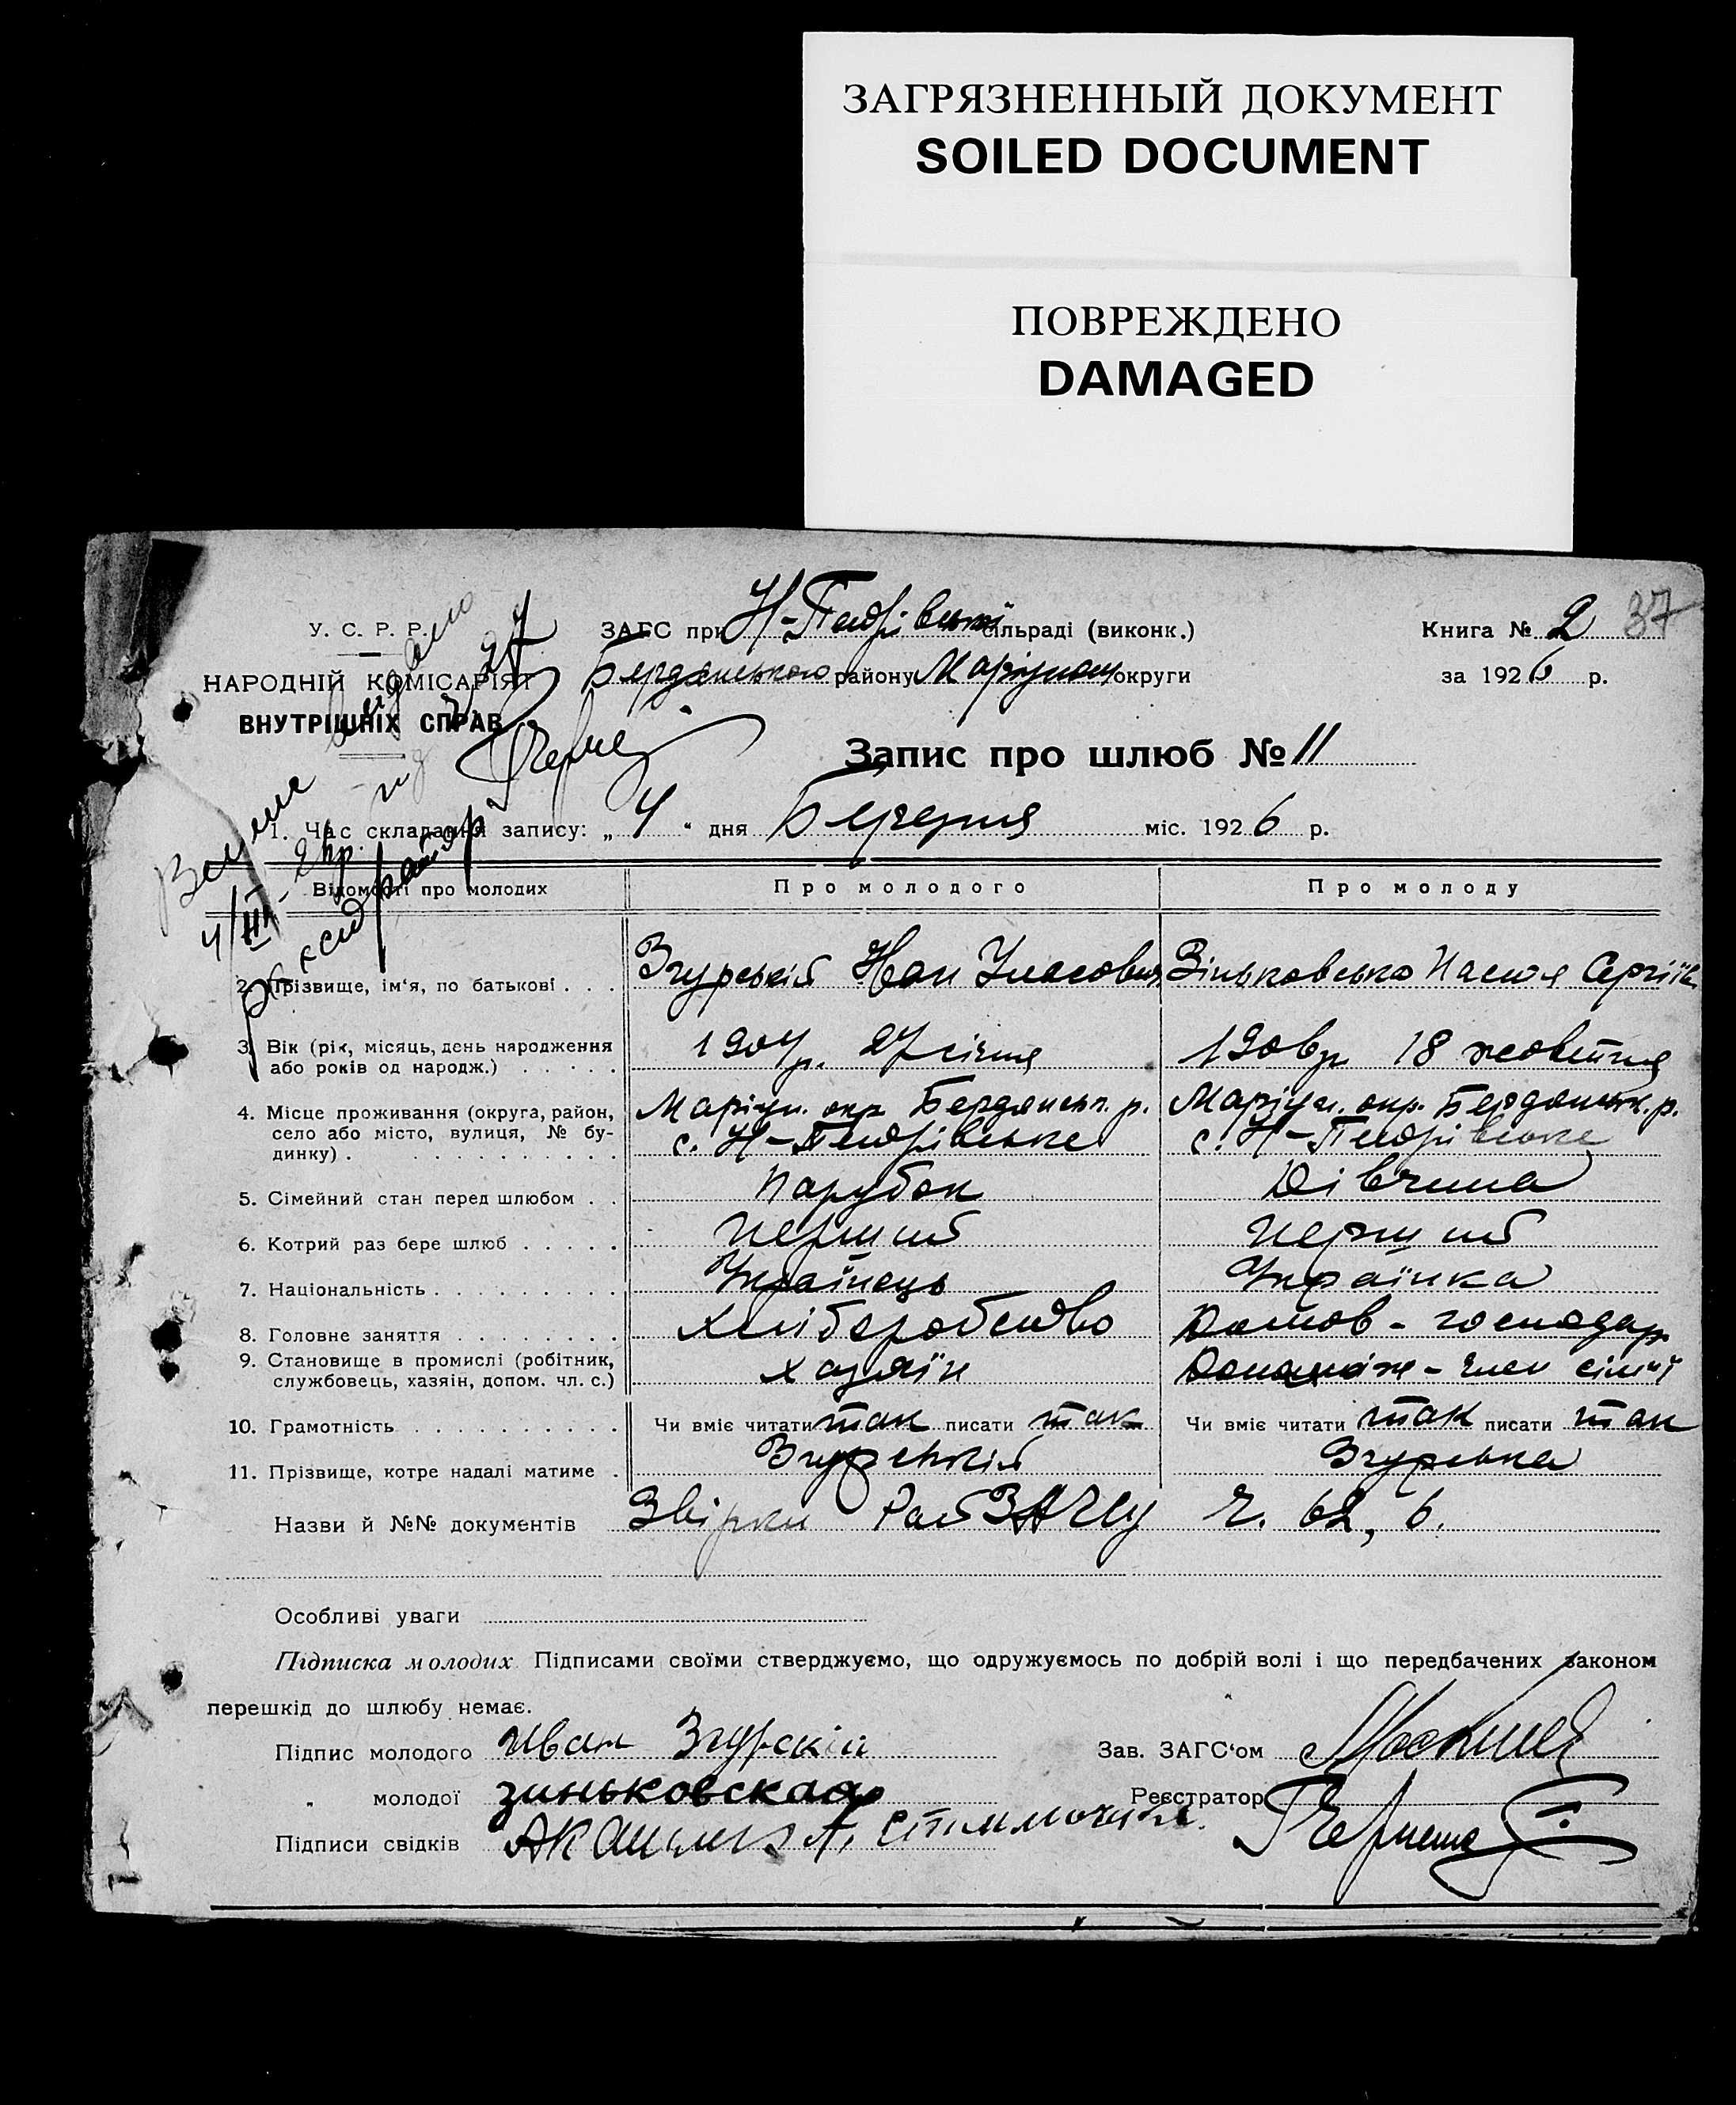 ЗАГРЯЗНЕННЫЙ ДОКУМЕНТ
SOILED DOCUMENT
ПОВРЕЖДЕНО
DAMAGED
У. С. Р. Р.
НАРОДНІЙ КОМІСАРІЯТ
ВНУТРІШНІХ СПРАВ
ЗАГС при Н-Петрівські сільраді (виконк.)
Бердянського району Маріупол округи
Книга № 2 37
за 1926 р.
Запис про шлюб № 11
1. Час складання запису: „ 4 “ дня Березня міс. 1926 р.
Відомості про молодих Про молодого Про молоду
2. Прізвище, ім‘я, по батькові . . . Згурський Іван Уласович Зіньковська Настя Сергіїв.
3. Вік (рік, місяць, день народження
або років од народж.) . . . . . 1904 р. 27 січня 1906 р. 18 жовтня
4. Місце проживання (округа, район,
село або місто, вулиця, № бу-
динку) . . . . . . . . . . Маріуп. окр. Бердянськ. р.
с. Н-Петрівське Маріуп. окр. Бердянськ. р.
с. Н-Петрівське
5. Сімейний стан перед шлюбом . . Парубок Дівчина
6. Котрий раз бере шлюб . . . . . Перший Перший
7. Національність . . . . . . . . . Українець Українка
8. Головне заняття . . . . . . . . Хліборобство Домов-господар
9. Становище в промислі (робітник,
службовець, хазяін, допом. чл. с.) хазяїн член сімʼї
10. Грамотність . . . . . . . . . . Чи вміє читати так писати так Чи вміє читати так писати так
11. Прізвище, котре надалі матиме . Згурський Згурська
Назви й №№ документів РайЗАГСу Ч. 62, 6.
Особливі уваги
Підписка молодих Підписами своїми стверджуємо, що одружуємось по добрій волі і що передбачених законом
перешкід до шлюбу немає.
Підпис молодого Иван Згурскій
Зав. ЗАГС‘ом
„ молодої зиньковская
Реєстратор
Підписи свідків